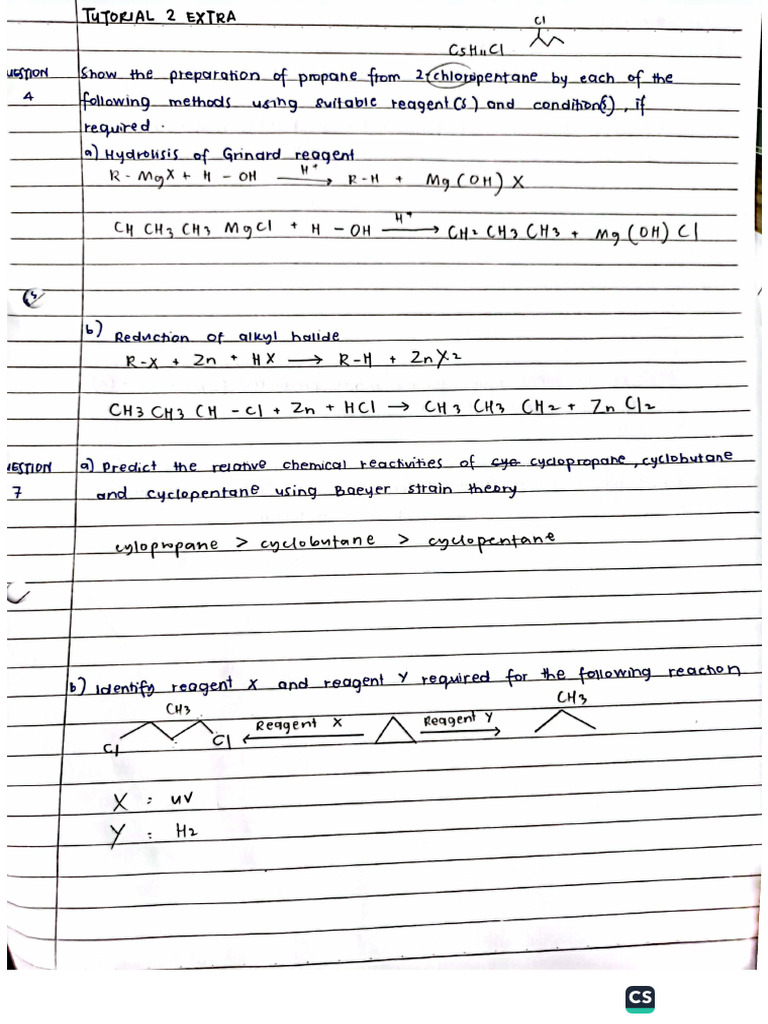 TUTORIAL 2 EXTRA
Cl
C5H11Cl
UESTION Show the preparation of propane from 2-chloropentane by each of the
4 following methods using suitable reagent(s) and condition(s), if
required.
a) Hydrolisis of Grinard reagent
R - MgX + H - OH H+ → R-H + Mg(OH)X
CH CH3 CH3 MgCl + H - OH H+ → CH2 CH3 CH3 + Mg(OH)Cl
b) Reduction of alkyl halide
R-X + Zn + HX → R-H + ZnX2
CH3 CH3 CH - Cl + Zn + HCl → CH3 CH3 CH2 + ZnCl2
UESTION a) Predict the relative chemical reactivities of cyc cyclopropane, cyclobutane
7 and cyclopentane using Baeyer strain theory
cylopropane > cyclobutane > cyclopentane
b) Identify reagent X and reagent Y required for the following reaction
CH3 CH3
Cl Cl Reagent X Reagent Y
X : UV
Y : H2
CS